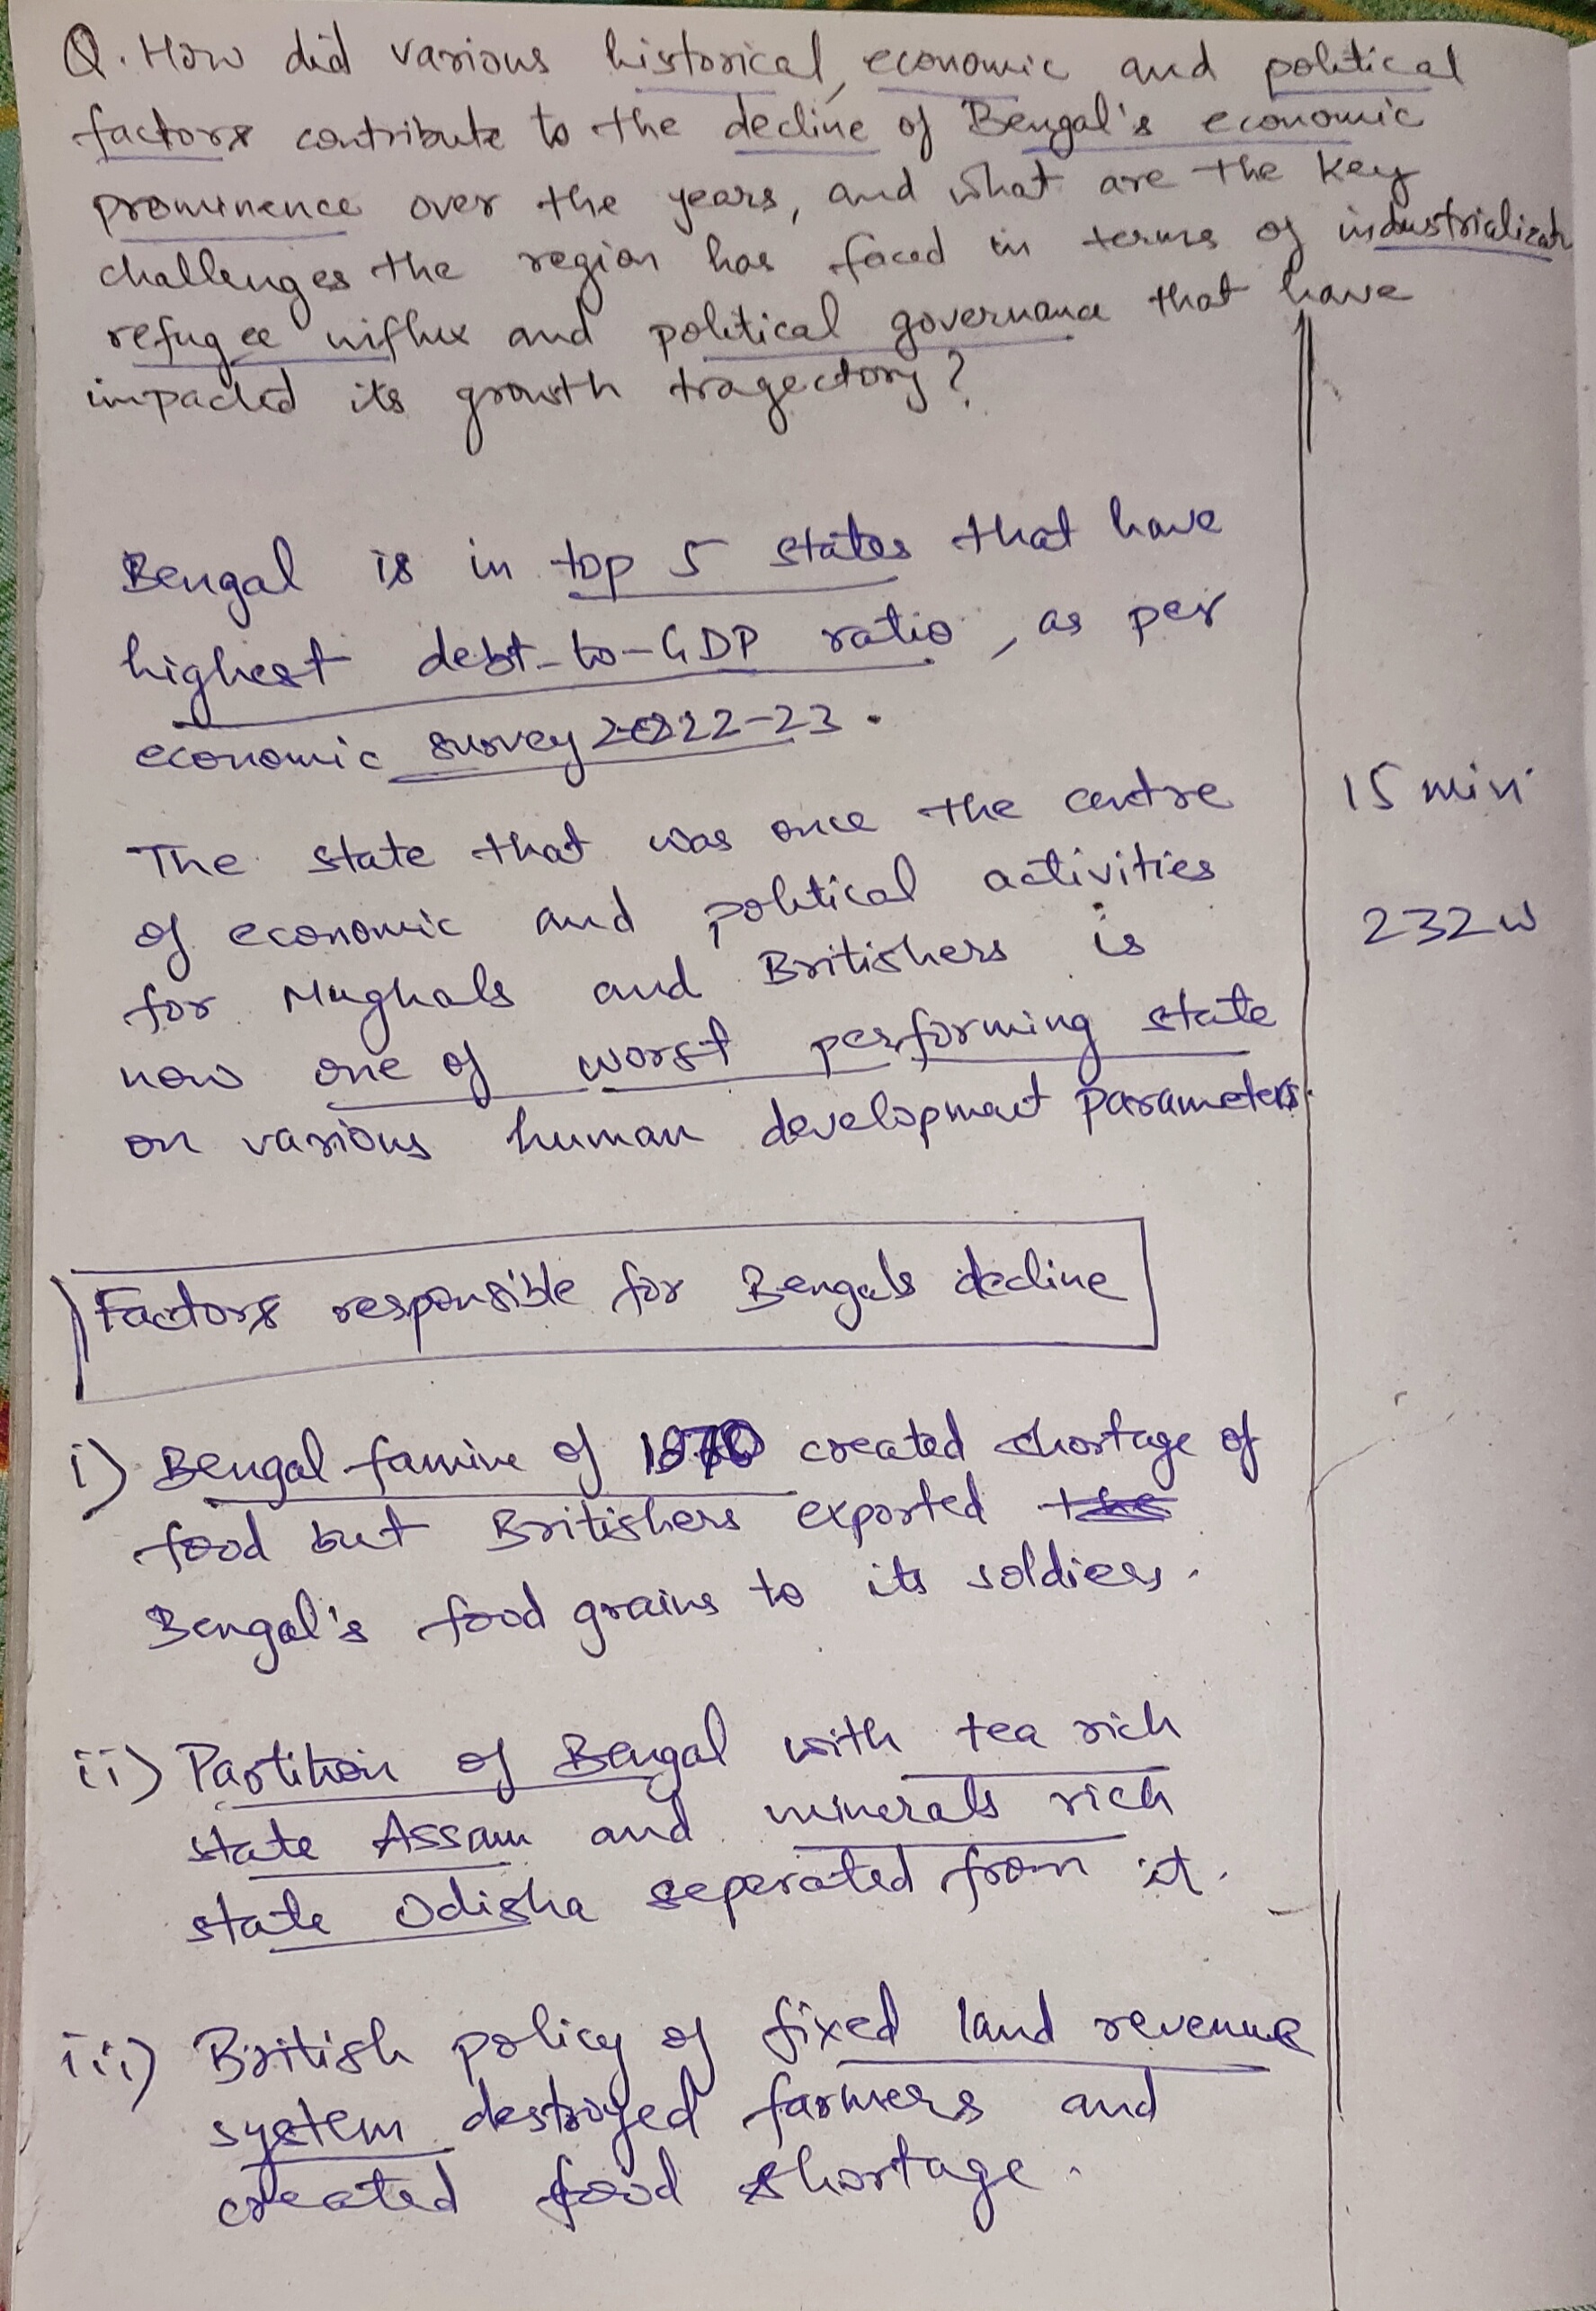 Q. How did various historical, economic and political
factors contribute to the decline of Bengal's economic
prominence over the years, and what are the key
challenges the region has faced in terms of industrializatn
refugee influx and political governance that have
impacted its growth tragectory?
Bengal is in top 5 states that have
highest debt-to-GDP ratio, as per
economic survey 2022-23.
The state that was once the centre
of economic and political activities
for Mughals and Britishers is
now one of worst performing state
on various human development parameters.
15 min
232 w
Factors responsible for Bengals decline
i) Bengal famine of created shortage of
food but Britishers exported the
Bengal's food grains to its soldiers.
ii) Partition of Bengal with tea rich
state Assam and minerals rich
state Odisha seperated from it.
iii) British policy of fixed land revenue
system destroyed farmers and
created food shortage.